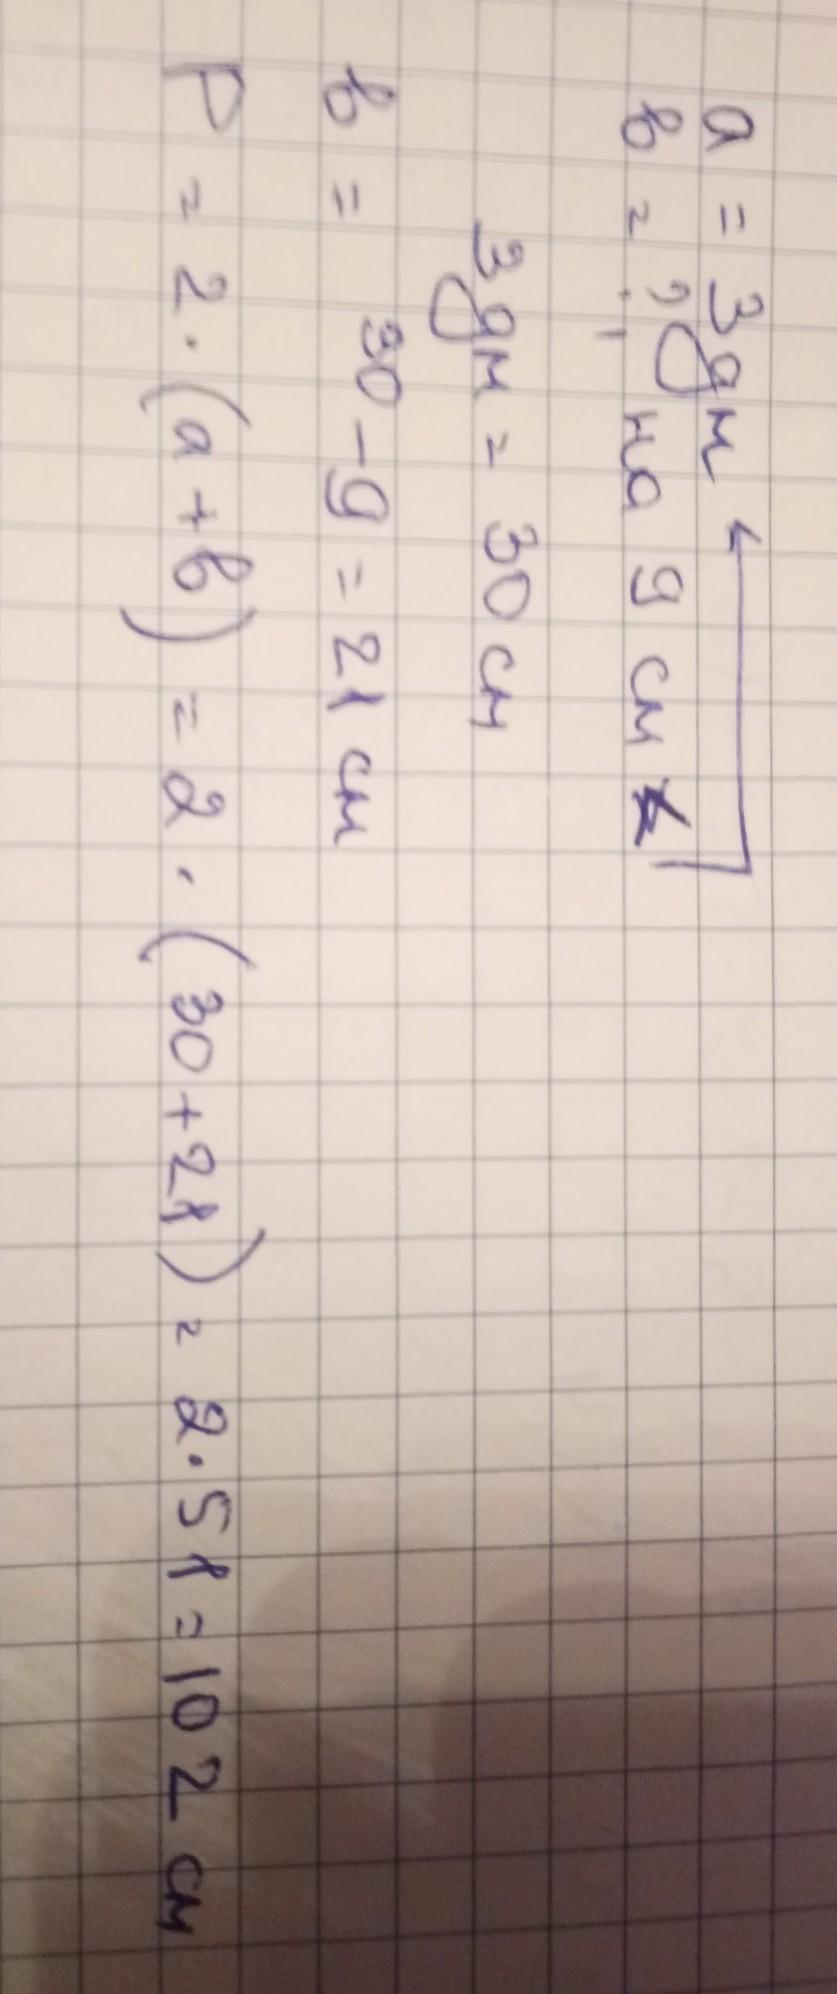 a = 3дм
в = ?, на 9 см <
3дм = 30 см
в = 30 - 9 = 21 см
P = 2 · (а + в) = 2 · (30 + 21) = 2 · 51 = 102 см